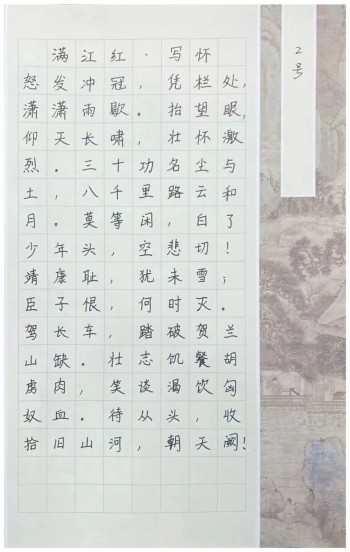 满江红·写怀
怒发冲冠，凭栏处，
潇潇雨歇。抬望眼，
仰天长啸，壮怀激
烈。三十功名尘与
土，八千里路云和
月。莫等闲，白了
少年头，空悲切！
靖康耻，犹未雪；
臣子恨，何时灭。
驾长车，踏破贺兰
山缺。壮志饥餐胡
虏肉，笑谈渴饮匈
奴血。待从头，收
拾旧山河，朝天阙！
2号